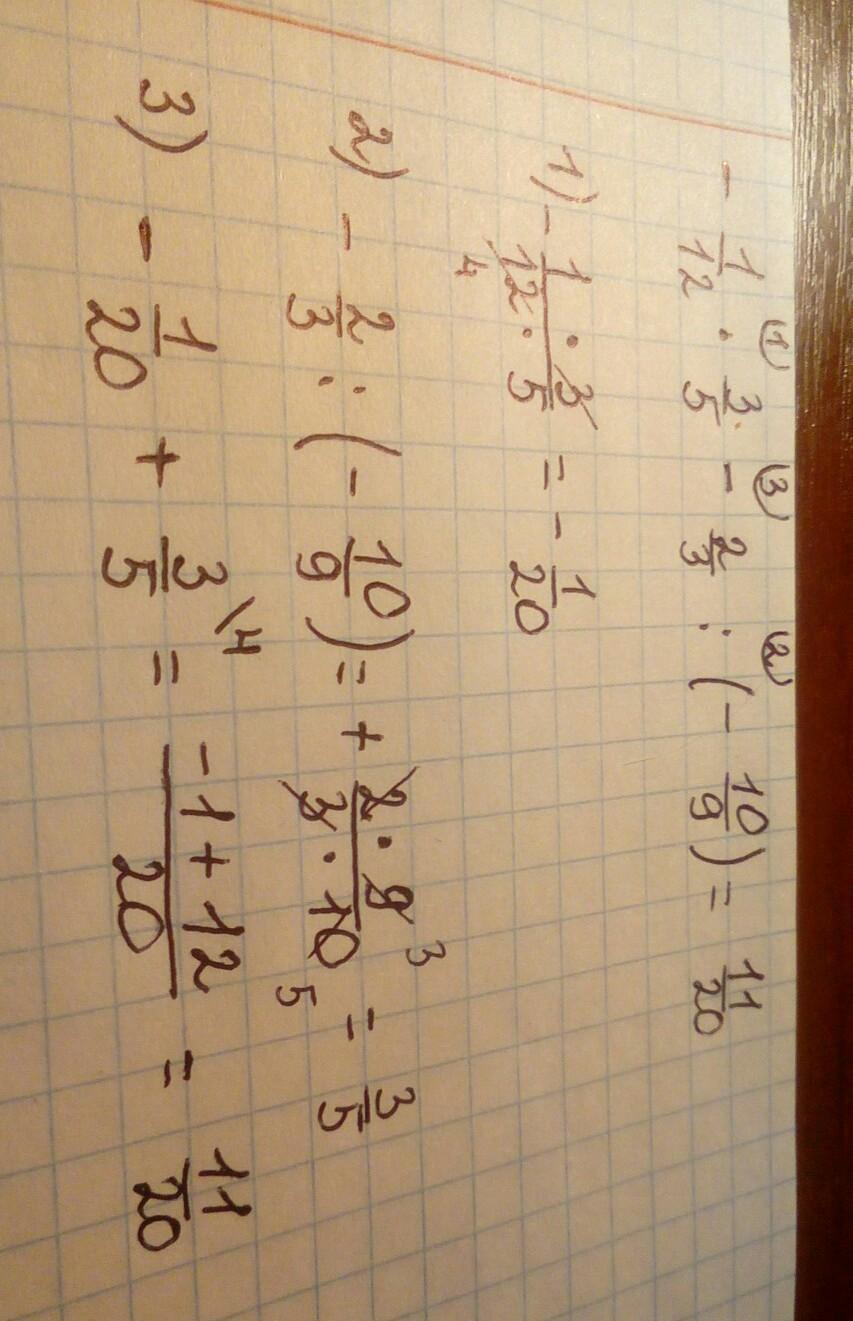 ① ③ ②
- 1/12 · 3/5 - 2/3 : (- 10/9) = 11/20
1) - 1 · 3 / 12 · 5 4 = - 1/20
2) - 2/3 : (- 10/9) = + 2 · 9 3 / 3 · 10 5 = 3/5
3) - 1/20 + 3/5 \4 = -1 + 12 / 20 = 11/20